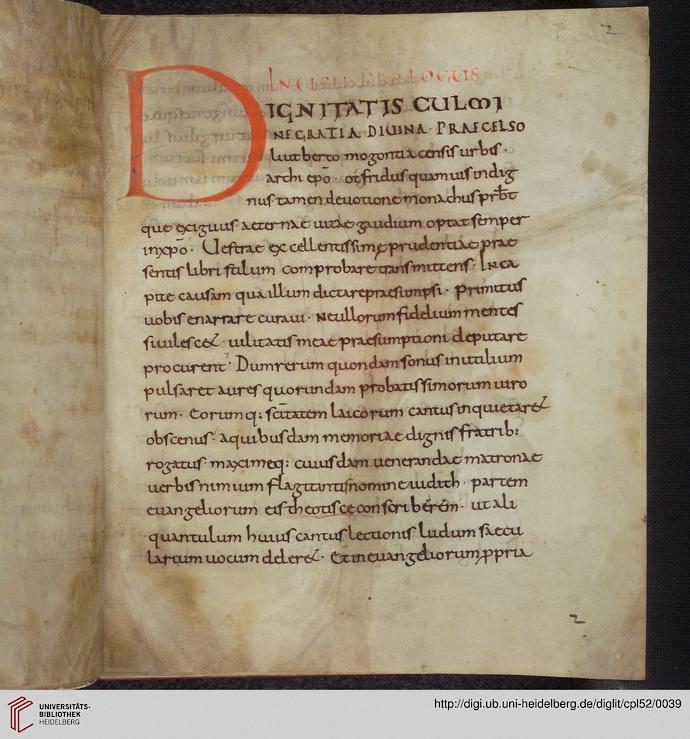 2
INCIPIT PROLOGUS
DIGNITATIS CULMI
NE GRATIA DIUINA · PRAECELSO
liutberto mogontiacensis urbis ·
archi ep̄o · otfridus quamuis indig
nus tamen deuotione monachus prb̄t
que exiguus aeternae uitae gaudium optat semper
inxp̄o · Uestrae excellentissimę prudentiae prae
sentis libri stilum comprobare transmittens · Inca
pite causam qua illum dictare praesumpsi · primitus
uobis enarrare curaui · neullorum fidelium mentes
siuilescet · uilitatis meae praesumptioni deputare
procurent · Dum rerum quondam sonus inutilium
pulsaret aures quorundam probatissimorum uiro
rum · eorumq: sc̄itatem laicorum cantus inquietaret
obscenus · aquibusdam memoriae dignis fratrib:
rogatus · maximeq: cuiusdam uenerandae matronae
uerbis nimium flagitantis nomine iudith · partem
euangeliorum eis theotisce conscriberem · ut ali
quantulum huius cantus lectionis ludum saecu
larium uocum deleret · Et in euangeliorum ꝓpria
2
UNIVERSITÄTS-
BIBLIOTHEK
HEIDELBERG
http://digi.ub.uni-heidelberg.de/diglit/cpl52/0039